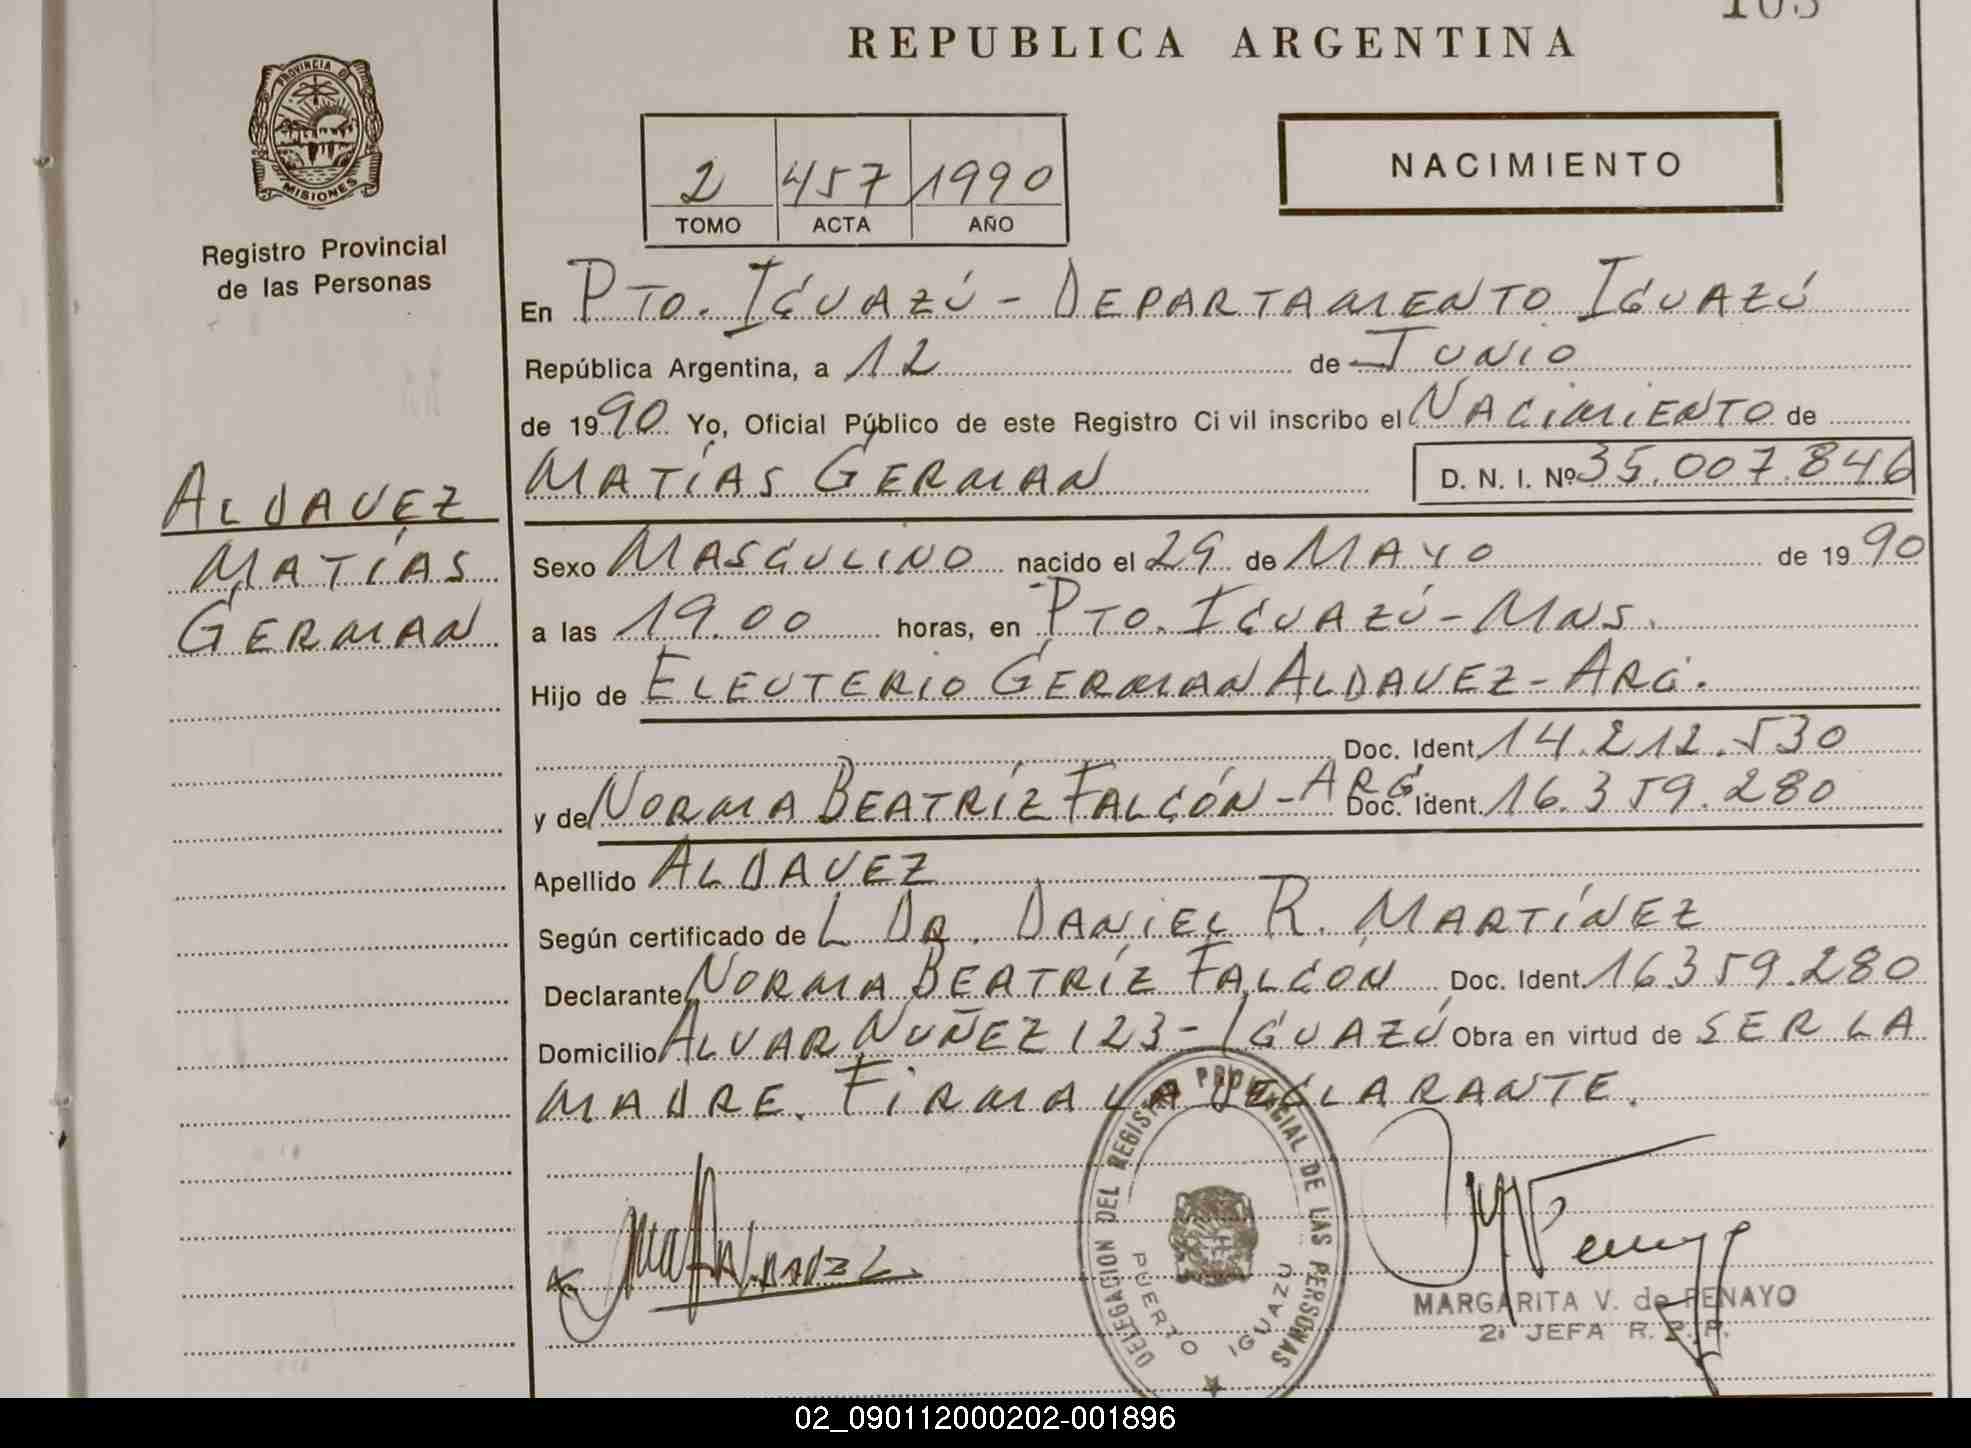 103
REPUBLICA ARGENTINA
PROVINCIA DE
MISIONES
Registro Provincial
de las Personas
2 457 1990
TOMO ACTA AÑO
NACIMIENTO
En PTO. IGUAZÚ - DEPARTAMENTO IGUAZÚ
República Argentina, a 12 de JUNIO
de 1990 Yo, Oficial Público de este Registro Civil inscribo el NACIMIENTO de
ALDAVEZ
MATÍAS
GERMAN
MATÍAS GERMAN D. N. I. Nº 35.007.846
Sexo MASCULINO nacido el 29 de MAYO de 1990
a las 19.00 horas, en PTO. IGUAZÚ - MNS.
Hijo de ELEUTERIO GERMAN ALDAVEZ - ARG.
Doc. Ident. 14.212.530
y de NORMA BEATRÍZ FALCÓN - ARG. Doc. Ident. 16.359.280
Apellido ALDAVEZ
Según certificado de L DR. DANIEL R. MARTÍNEZ
Declarante NORMA BEATRÍZ FALCÓN Doc. Ident. 16.359.280
Domicilio ALVAR NUÑEZ 123 - IGUAZÚ Obra en virtud de SER LA
MADRE. FIRMA LA DECLARANTE.
DELEGACION DEL REGISTRO PROVINCIAL DE LAS PERSONAS
PUERTO IGUAZU
MARGARITA V. de PENAYO
2ª JEFA R. P. P.
02_090112000202-001896